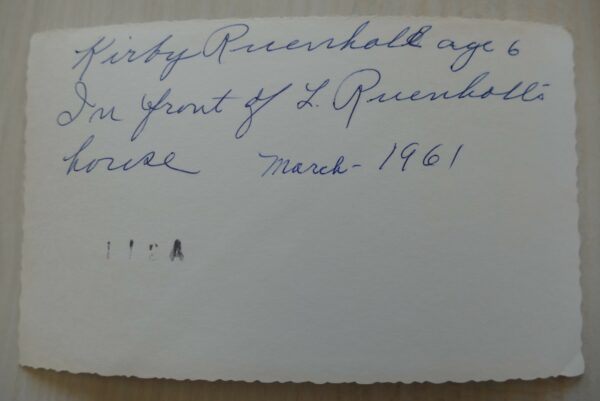 Kirby Ruenholl age 6
In front of L. Ruenholl's
house March - 1961